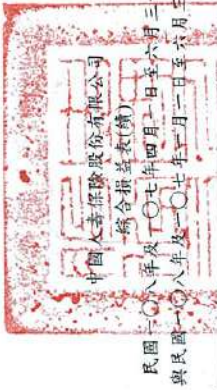 中國人壽保險股份有限公司
綜合損益表(續)
民國一〇八年及一〇七年四月一日至六月三
與民國一〇八年及一〇七年一月一日至六月三